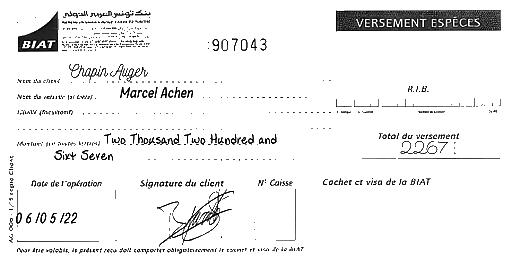 بنك تونس العربي الدولي
BIAT
VERSEMENT ESPÈCES
907043
Nom du client Chapin Auger
Nom du verseur (si tiers) Marcel Achen
R.I.B.
Libellé (facultatif)
Montant (en toutes lettres) Two Thousand Two Hundred and
Sixt Seven
Total du versement
2267
Date de l'opération
Signature du client
N° Caisse
Cachet et visa de la BIAT
06/05/22
Pour être valable, le présent reçu doit comporter obligatoirement le cachet et visa de la BIAT